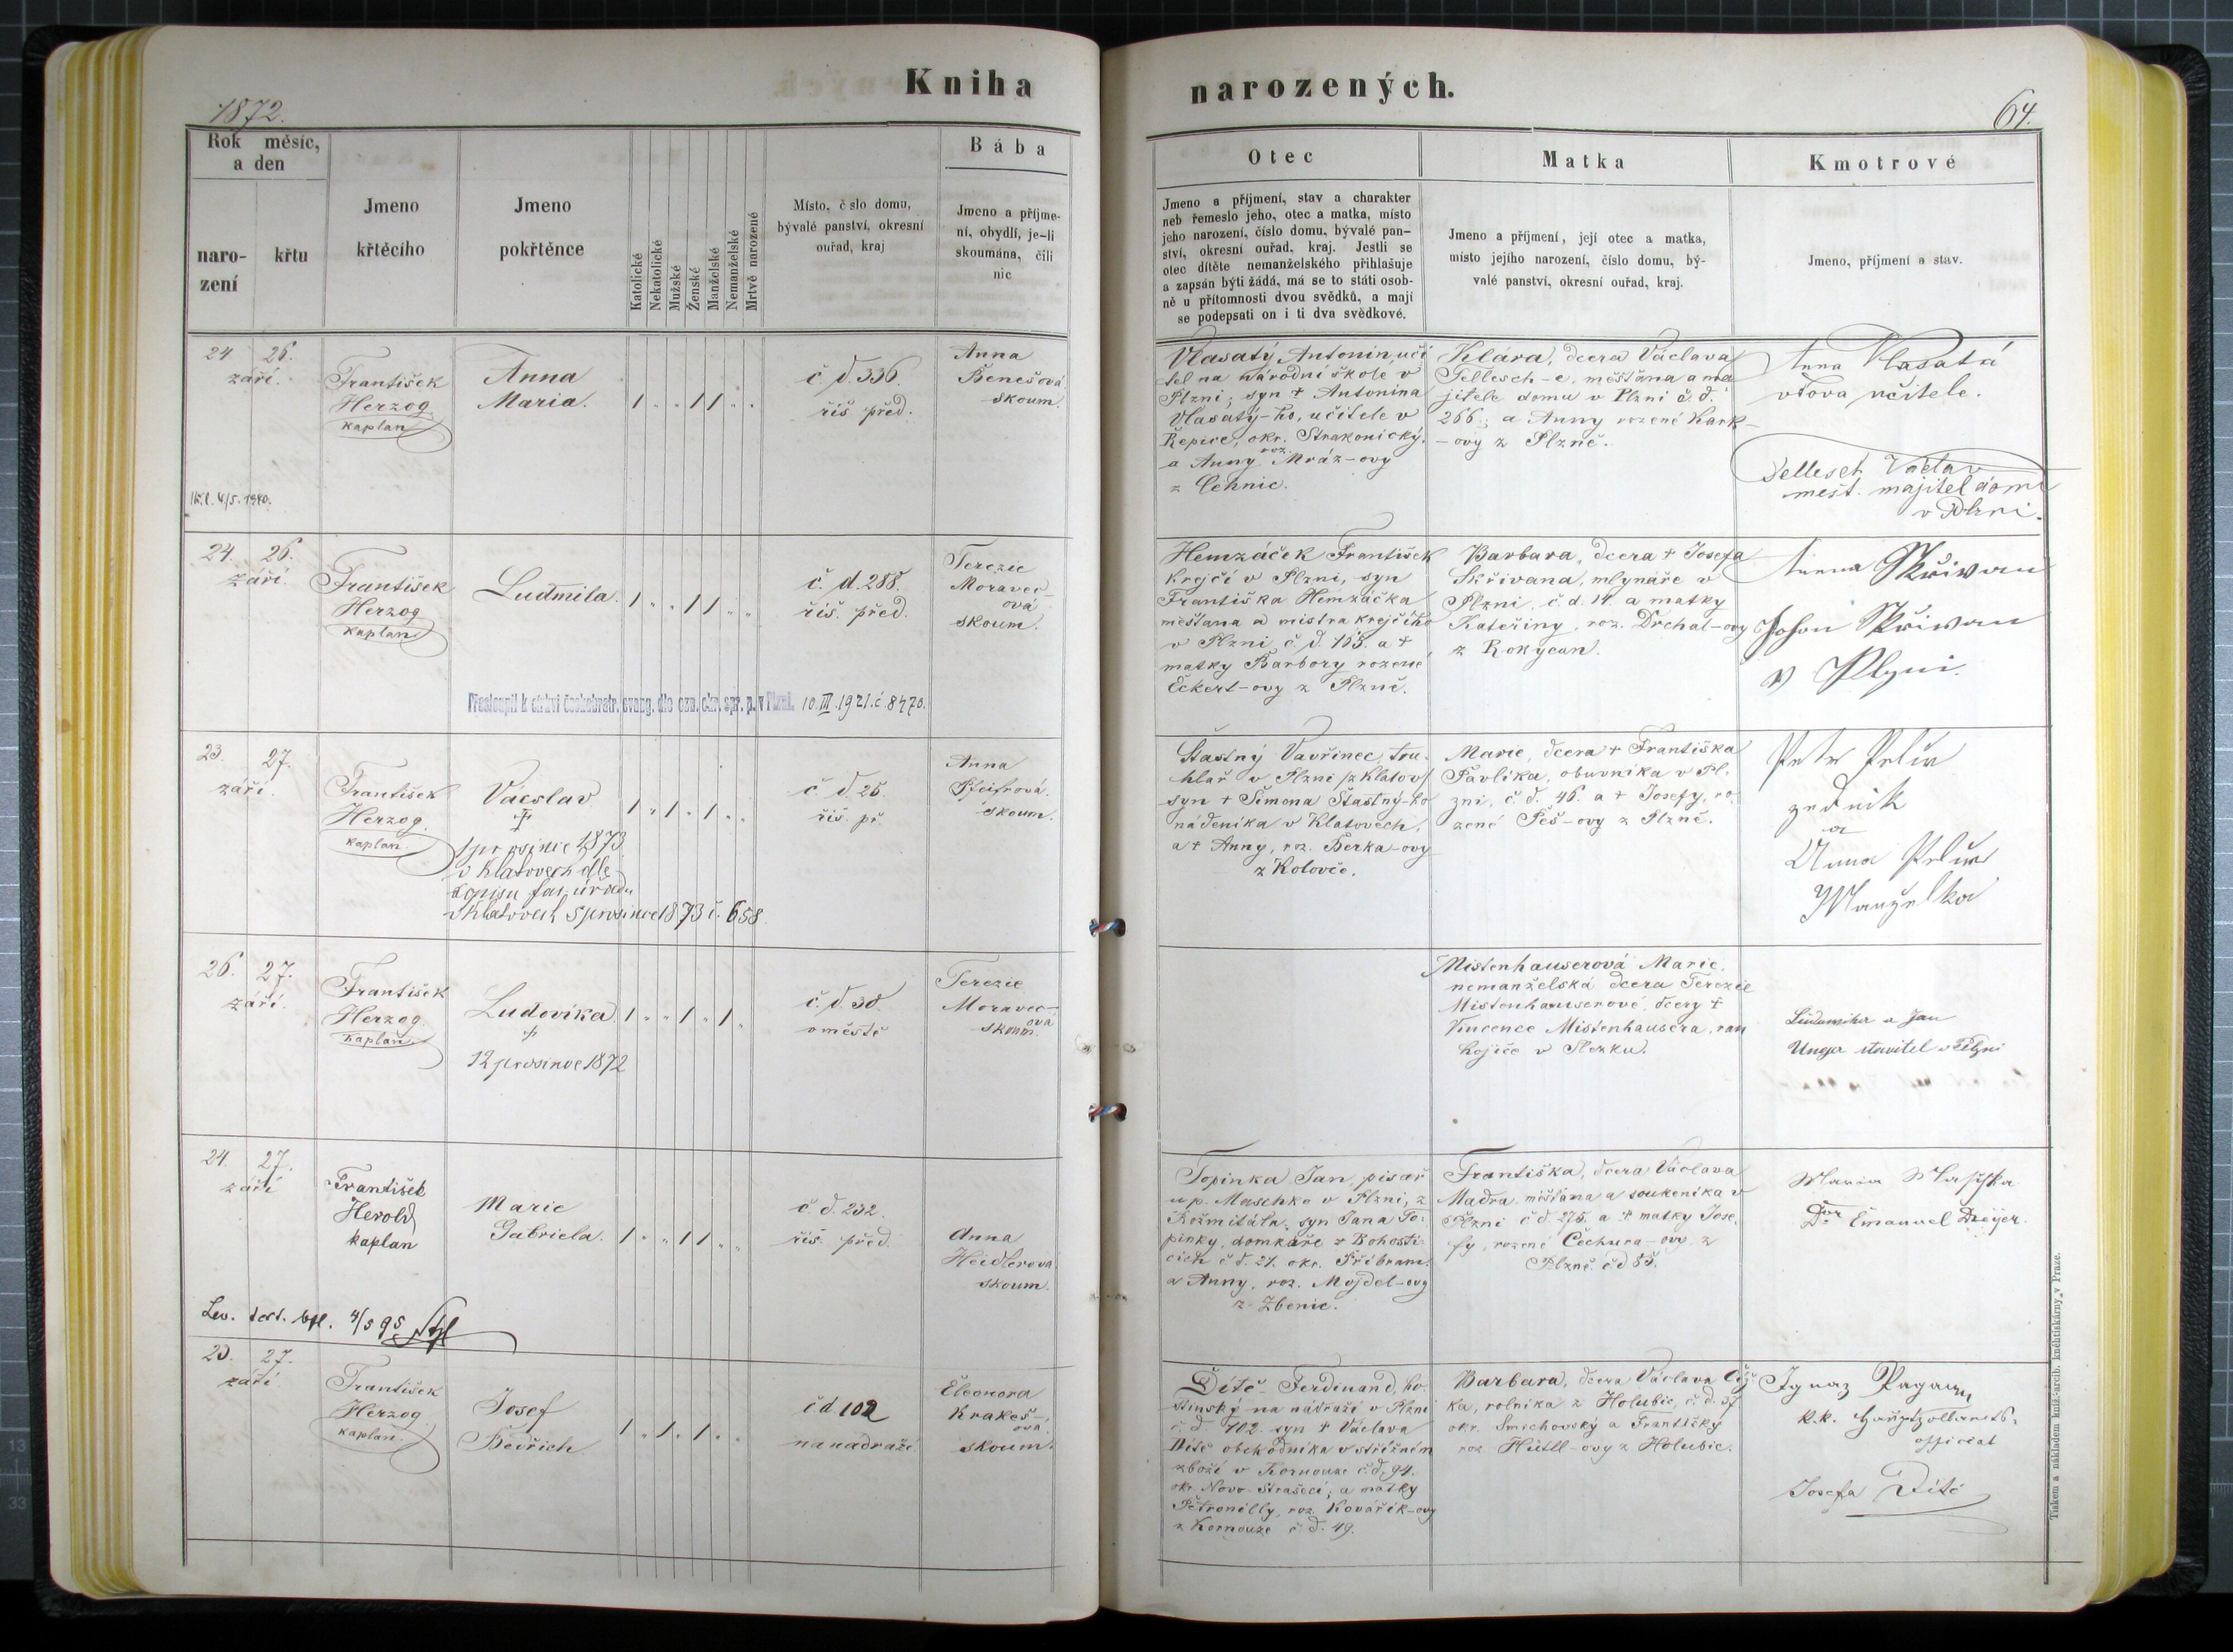 Kniha
1872.
Rok měsíc,
a den
naro-
zení
křtu
Jmeno
křtěcího
Jmeno
pokřtěnce
Katolické
Nekatolické
Mužské
Ženské
Manželské
Nemanželské
Mrtvě narozené
Místo, číslo domu,
bývalé panství, okresní
ouřad, kraj
Bába
Jmeno a příjme-
ní, obydlí, je-li
skoumána, čili
nic
24 26.
září.
František
Herzog
kaplan
Anna
Maria.
č. d. 336.
řiš. před.
Anna
Benešová
skoum.
4/5. 1940.
24. 26.
září.
František
Herzog
kaplan
Ludmila.
č. d. 288.
řiš. před.
Terezie
Moravec-
ová
skoum.
Přestoupil k církvi českobratr. evang. dle ozn. okr. spr. p. v Plzni. 10. III. 1921. č. 8470.
23. 27.
září.
František
Herzog
kaplan
Václav
†
1 prosince 1873
v Klatovech dle
dopisu far. úřadu
v Klatovech 5 prosince 1873 č. 658.
č. d. 25.
řiš. př.
Anna
Pfeifrová.
skoum.
26. 27.
září.
František
Herzog
kaplan
Ludovika.
†
12 prosince 1872
č. d. 30.
v městě
Terezie
Moravec-
ová
skoum.
24. 27.
září
František
Herold
kaplan
Marie
Gabriela.
č. d. 232.
řiš. před.
Anna
Heidlerová
skoum.
4/5 95
23. 27.
září
František
Herzog
kaplan.
Josef
Bedřich.
č d 102
na nádraží
Eleonora
Krakeš-
ová
skoum.
narozených.
64.
Otec
Jmeno a příjmení, stav a charakter
neb řemeslo jeho, otec a matka, místo
jeho narození, číslo domu, bývalé pan-
ství, okresní ouřad, kraj. Jestli se
otec dítěte nemanželského přihlašuje
a zapsán býti žádá, má se to státi osob-
ně u přítomnosti dvou svědků, a mají
se podepsati on i ti dva svědkové.
Matka
Jmeno a příjmení, její otec a matka,
místo jejího narození, číslo domu, bý-
valé panství, okresní ouřad, kraj.
Kmotrové
Jmeno, příjmení a stav.
Vlasatý Antonin, uči
tel na národní škole v
Plzni; syn † Antonina
Vlasatý-ho, učitele v
Řepice, okr. Strakonický.
a Anny roz. Mráz-ovy
z Čehnic.
Klára, dcera Václava
Tellesch-e, měšťana a ma
jitele domu v Plzni č. d.
266; a Anny rozené Kark-
-ovy z Plzně.
Anna Vlasatá
vdova učitele.
Tellesch Václav
měšt. majitel domu
v Plzni.
Hemzáček František
krejčí v Plzni, syn
Františka Hemzáčka
měšťana a mistra krejčího
v Plzni č. d. 168. a †
matky Barbory rozené
Eckert-ovy z Plzně.
Barbara, dcera † Josefa
Skřivana, mlynáře v
Plzni, č. d. 14. a matky
Kateřiny, roz. Drchal-ovy
z Rokycan.
Anna Skřivan
Johan Skřivan
v Plzni.
Šťastný Vavřinec, tru-
hlař v Plzni /z Klatov/
syn † Šimona Šťastný-ho
nádeníka v Klatovech,
a † Anny, roz. Berka-ovy
z Kolovče.
Marie, dcera † Františka
Pavlíka, obuvníka v Pl-
zni, č. d. 46. a † Josefy, ro-
zené Peš-ovy z Plzně.
Petr
zedník
a
Anna
Manželka
Mistenhauserová Marie,
nemanželská dcera Terezie
Mistenhauserové, dcery †
Vincence Mistenhausera, ran
hojiče v Slezku.
Ludmila a Jan
Unger stavitel v Plzni
Topinka Jan, písař
u p. Maschke v Plzni, z
Rožmitála, syn Jana To-
pinky, domkaře z Bohosti-
cích č. d. 21. okr. Příbram.
a Anny, roz. Mojdel-ovy
z Zbenic.
Františka, dcera Václava
Madra, měšťana a soukeníka v
Plzni č d. 275. a † matky Jose-
fy, rozené Čechura-ovy z
Plzně. č d 85.
Maria Maschka
Dor Emanuel Dreyer.
Dítě Ferdinand, ho-
stinský na nádraží v Plzni
č. d. 102. syn † Václava
Dítě obchodníka v střižném
zboží v Kornouze č. d. 94.
okr. Novo-Strašecí; a matky
Petronilly, roz. Kovářík-ovy
z Kornouze č. d. 49.
Barbara, dcera Václava Číž-
ka, rolníka z Holubic, č. d. 37
okr. Smichovský a Františky
roz. Hüttl-ovy z Holubic.
Ignaz
k.k. Hauptzollamts-
official
Josefa Dítě
Tiskem a nákladem kníž.-arcib. knihtiskárny v Praze.